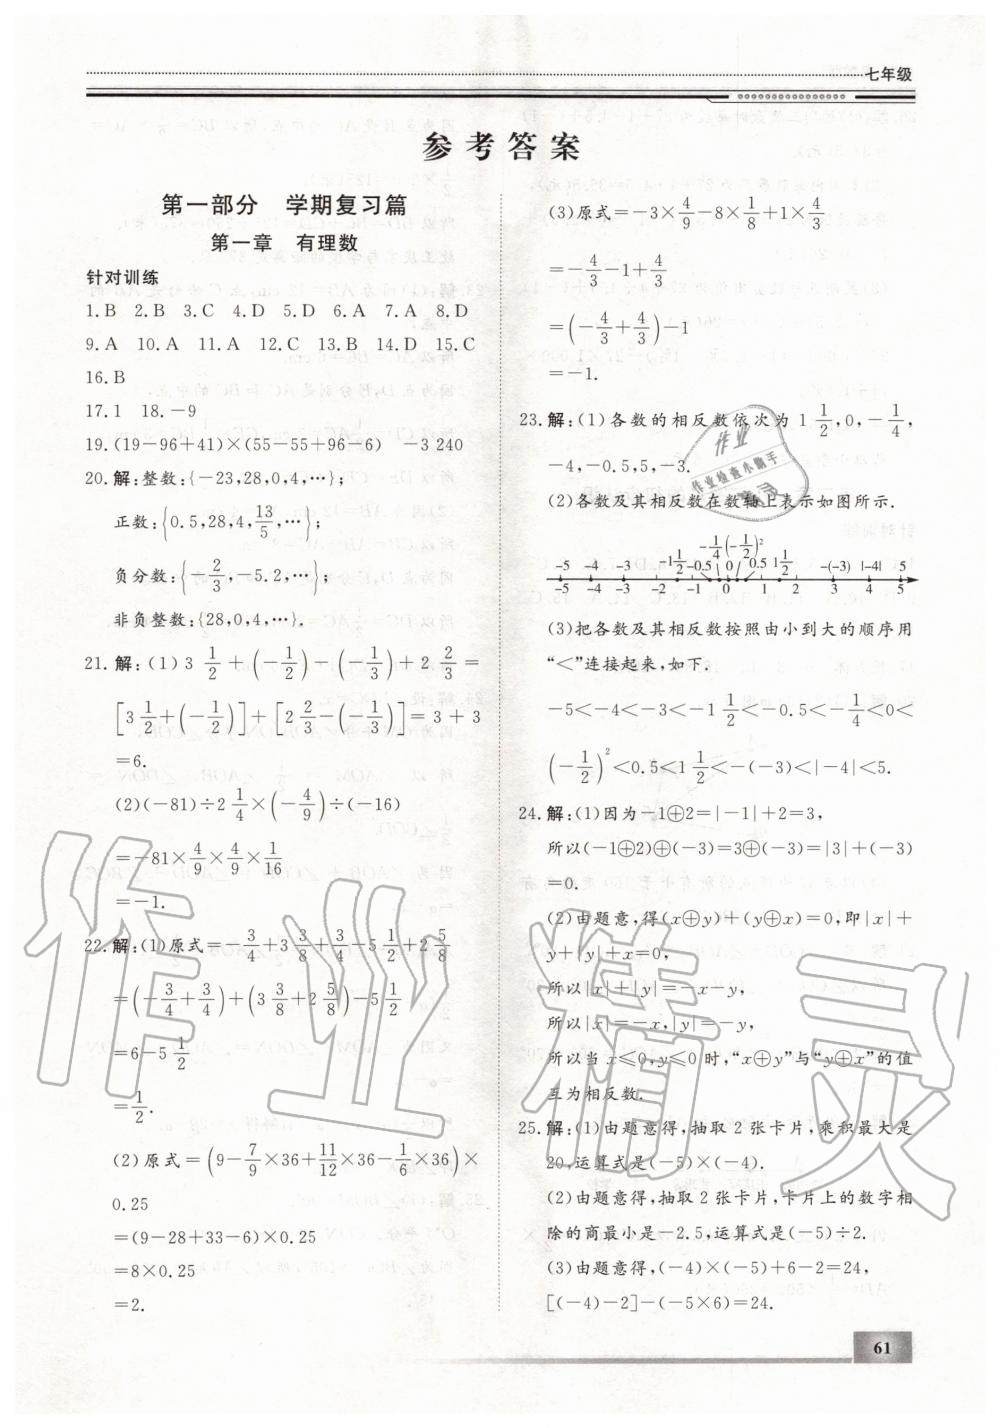 七年级
参考答案
第一部分 学期复习篇
第一章 有理数
针对训练
1.B 2.B 3.C 4.D 5.D 6.A 7.A 8.D
9.A 10.A 11.A 12.C 13.B 14.D 15.C
16.B
17.1 18.-9
19.(19-96+41)×(55-55+96-6) -3 240
20.解:整数:{-23,28,0,4,…};
正数:{0.5,28,4,13/5,…};
负分数:{-2/3,-5.2,…};
非负整数:{28,0,4,…}.
21.解:(1)3 1/2+(-1/2)-(-1/3)+2 2/3=
[3 1/2+(-1/2)]+[2 2/3-(-1/3)]=3+3
=6.
(2)(-81)÷2 1/4×(-4/9)÷(-16)
=-81×4/9×4/9×1/16
=-1.
22.解:(1)原式=-3/4+3 3/8+3/4-5 1/2+2 5/8
=(-3/4+3/4)+(3 3/8+2 5/8)-5 1/2
=6-5 1/2
=1/2.
(2)原式=(9-7/9×36+11/12×36-1/6×36)×
0.25
=(9-28+33-6)×0.25
=8×0.25
=2.
(3)原式=-3×4/9-8×1/8+1×4/3
=-4/3-1+4/3
=(-4/3+4/3)-1
=-1.
23.解:(1)各数的相反数依次为1 1/2,0,-1/4,
-4,-0.5,5,-3.
(2)各数及其相反数在数轴上表示如图所示.
-5 -4 -3 -1 1/2 -0.5 -1/4 0 (-1/2)² 0.5 1 1/2 -(-3) |-4| 5
-5 -4 -3 -2 -1 0 1 2 3 4 5
(3)把各数及其相反数按照由小到大的顺序用
“<”连接起来,如下.
-5<-4<-3<-1 1/2<-0.5<-1/4<0<
(-1/2)²<0.5<1 1/2<-(-3)<|-4|<5.
24.解:(1)因为-1⊕2=|-1|+2=3,
所以(-1⊕2)⊕(-3)=3⊕(-3)=|3|+(-3)
=0.
(2)由题意,得(x⊕y)+(y⊕x)=0,即|x|+
y+|y|+x=0,
所以|x|+|y|=-x-y,
所以|x|=-x,|y|=-y,
所以当x≤0,y≤0时,“x⊕y”与“y⊕x”的值
互为相反数.
25.解:(1)由题意得,抽取2张卡片,乘积最大是
20,运算式是(-5)×(-4).
(2)由题意得,抽取2张卡片,卡片上的数字相
除的商最小是-2.5,运算式是(-5)÷2.
(3)由题意得,(-4)×(-5)+6-2=24,
[(-4)-2]-(-5×6)=24.
61
作业
作业检查小助手
作业精灵